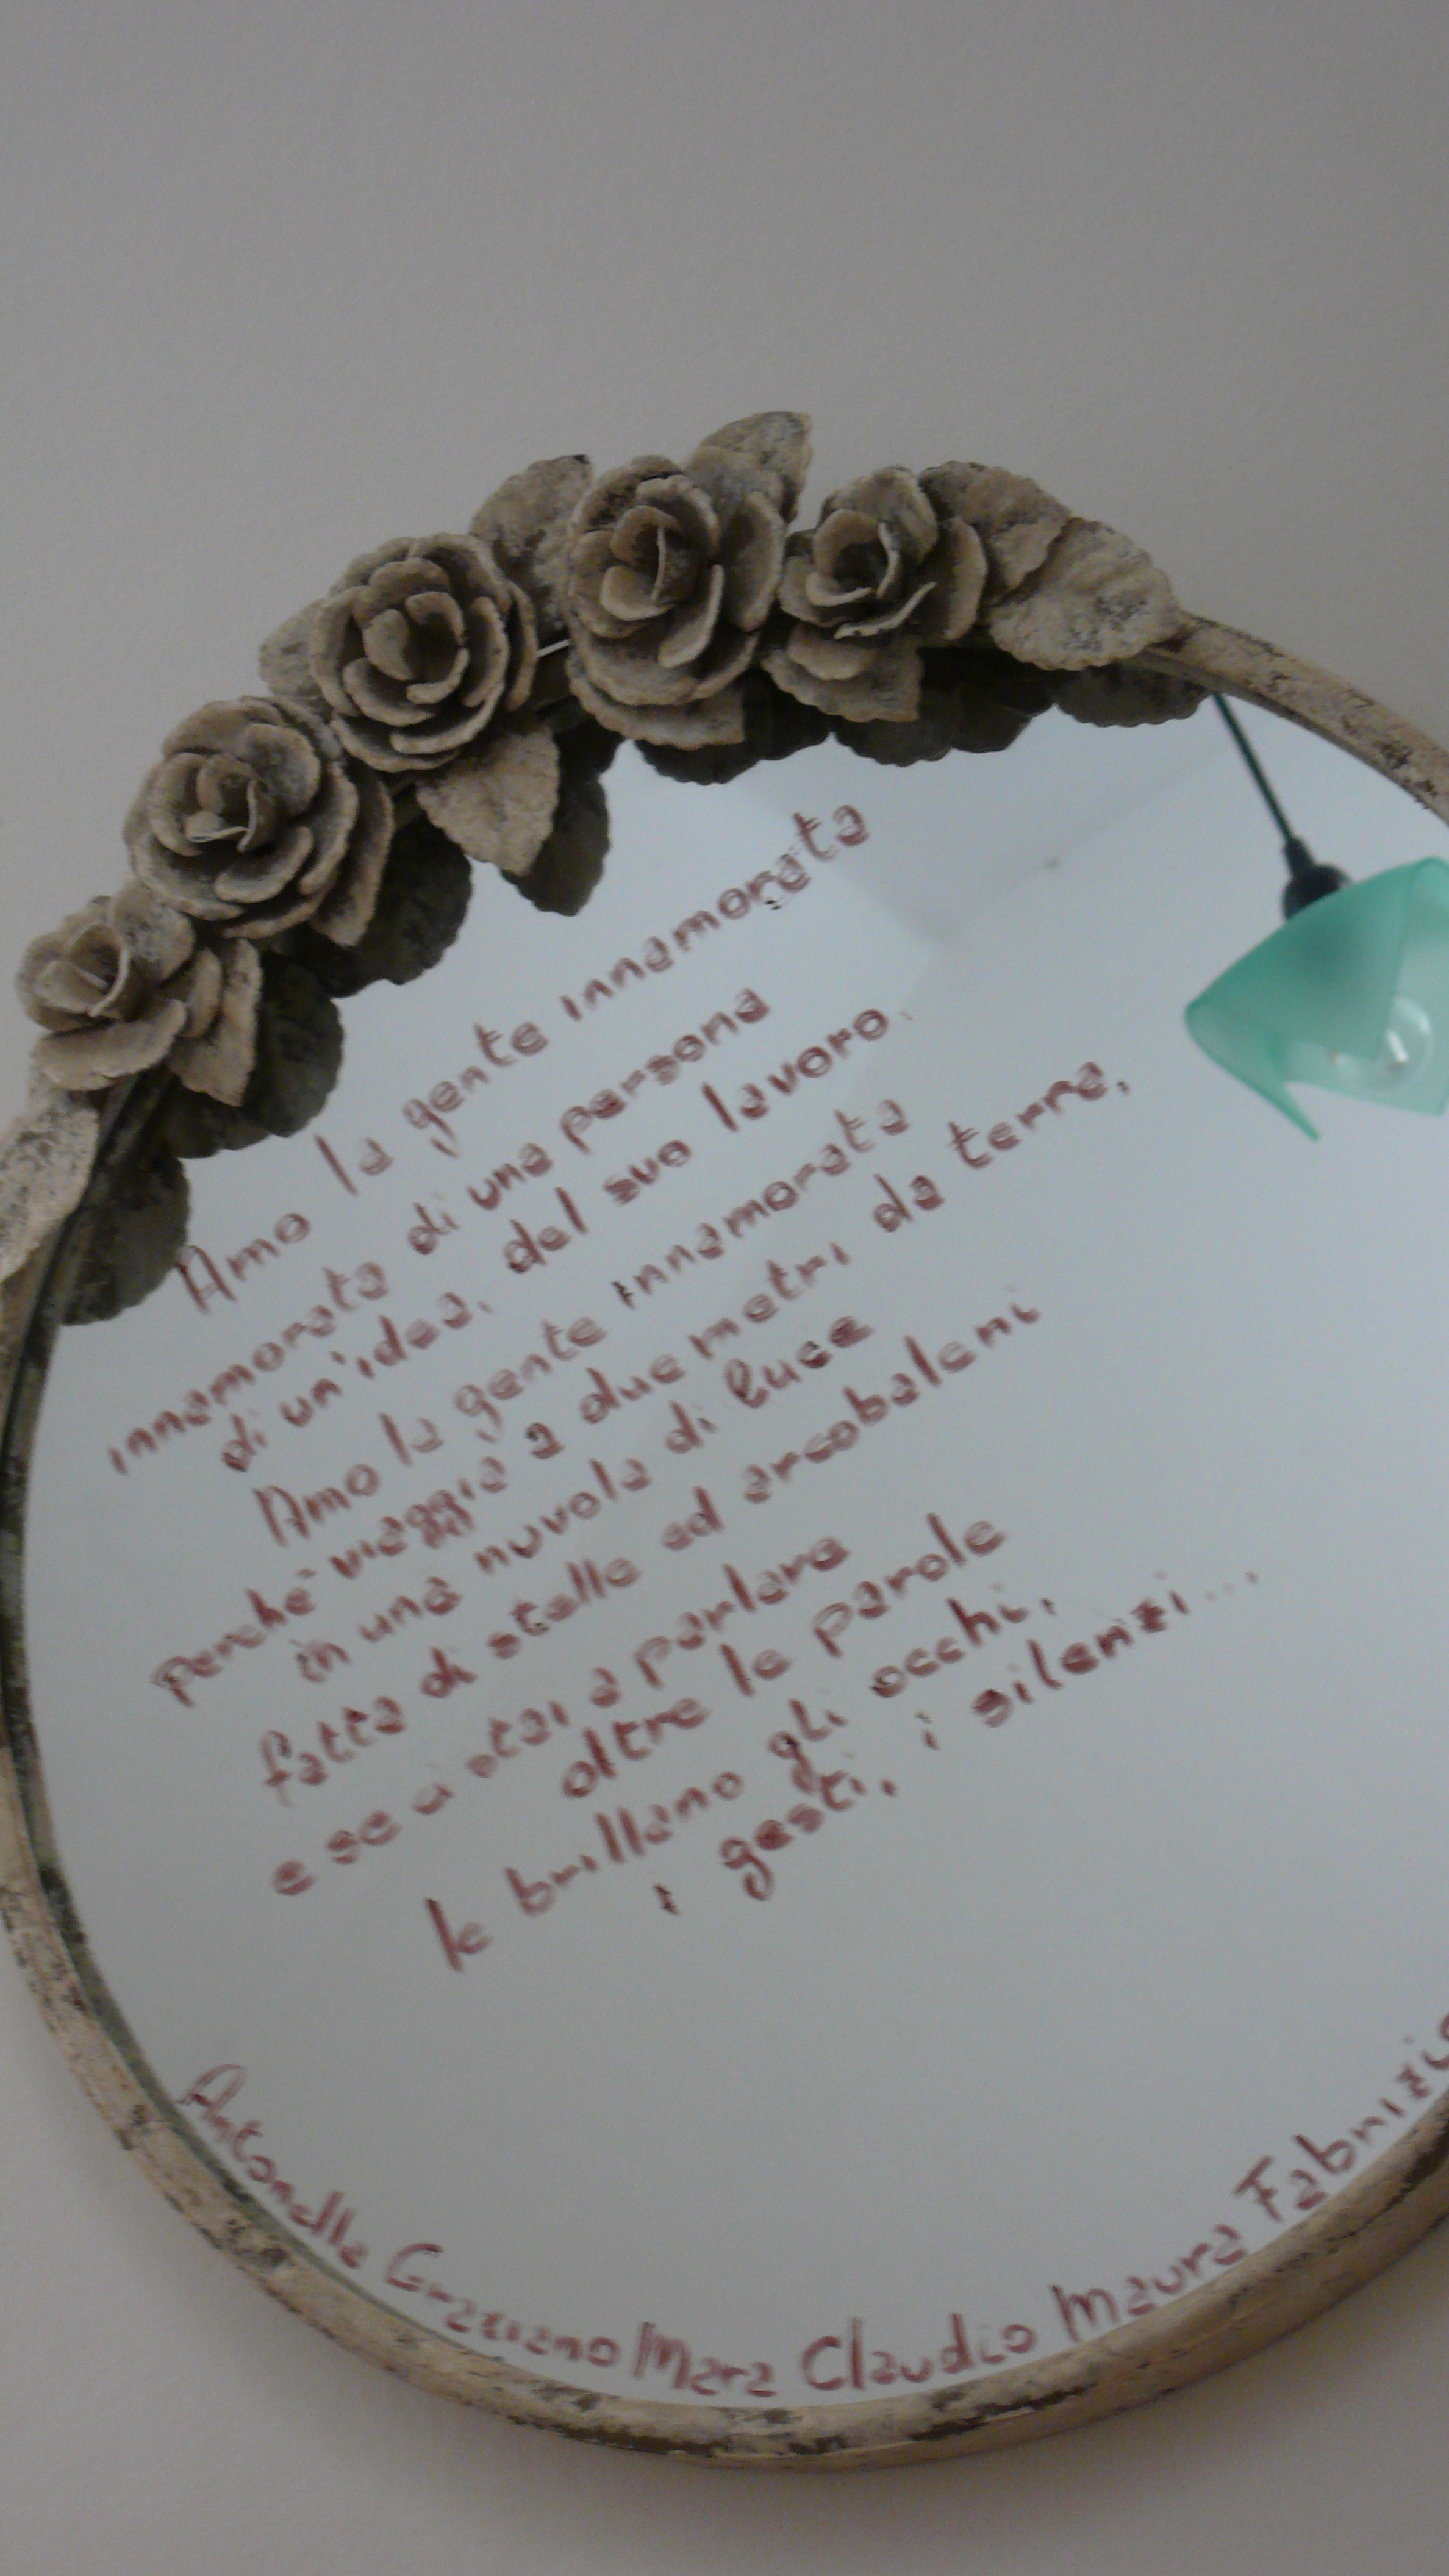 Amo la gente innamorata
innamorata di una persona
di un'idea, del suo lavoro.
Amo la gente innamorata
perchè viaggia a due metri da terra,
in una nuvola di luce
fatta di stelle ed arcobaleni
e se ci stai a parlare
oltre le parole
le brillano gli occhi,
i gesti, i silenzi...
Antonella Graziano Mara Claudio Maura Fabrizio